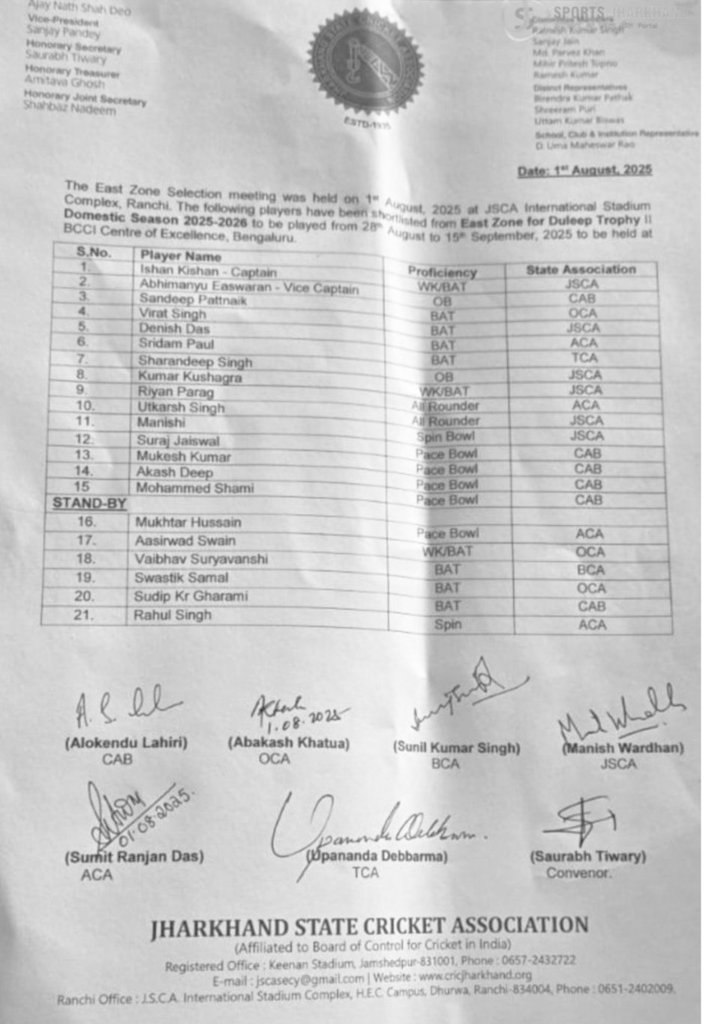 Ajay Nath Shah Deo
Vice-President
Sanjay Pandey
Honorary Secretary
Saurabh Tiwary
Honorary Treasurer
Amitava Ghosh
Honorary Joint Secretary
Shahbaz Nadeem
ESTD-1935
SPORTS JHARKHAND
Ratnesh Kumar Singh
Sanjay Jain
Md. Parvez Khan
Mihir Pritesh Topno
Ramesh Kumar
District Representatives
Birendra Kumar Pathak
Shreeram Puri
Uttam Kumar Biswas
School, Club & Institution Representative
D. Uma Maheswar Rao
Date: 1st August, 2025
The East Zone Selection meeting was held on 1st August, 2025 at JSCA International Stadium
Complex, Ranchi. The following players have been shortlisted from East Zone for Duleep Trophy II
Domestic Season 2025-2026 to be played from 28th August to 15th September, 2025 to be held at
BCCI Centre of Excellence, Bengaluru.
S.No. Player Name Proficiency State Association
1. Ishan Kishan - Captain WK/BAT JSCA
2. Abhimanyu Easwaran - Vice Captain OB CAB
3. Sandeep Pattnaik BAT OCA
4. Virat Singh BAT JSCA
5. Denish Das BAT ACA
6. Sridam Paul BAT TCA
7. Sharandeep Singh OB JSCA
8. Kumar Kushagra WK/BAT JSCA
9. Riyan Parag All Rounder ACA
10. Utkarsh Singh All Rounder JSCA
11. Manishi Spin Bowl JSCA
12. Suraj Jaiswal Pace Bowl CAB
13. Mukesh Kumar Pace Bowl CAB
14. Akash Deep Pace Bowl CAB
15 Mohammed Shami Pace Bowl CAB
STAND-BY
16. Mukhtar Hussain Pace Bowl ACA
17. Aasirwad Swain WK/BAT OCA
18. Vaibhav Suryavanshi BAT BCA
19. Swastik Samal BAT OCA
20. Sudip Kr Gharami BAT CAB
21. Rahul Singh Spin ACA
1.08.2025
(Alokendu Lahiri) (Abakash Khatua) (Sunil Kumar Singh) (Manish Wardhan)
CAB OCA BCA JSCA
01.08.2025.
Upananda Debbarma.
(Sumit Ranjan Das) (Upananda Debbarma) (Saurabh Tiwary)
ACA TCA Convenor.
JHARKHAND STATE CRICKET ASSOCIATION
(Affiliated to Board of Control for Cricket in India)
Registered Office : Keenan Stadium, Jamshedpur-831001, Phone : 0657-2432722
E-mail : jscasecy@gmail.com | Website : www.cricjharkhand.org
Ranchi Office : J.S.C.A. International Stadium Complex, H.E.C. Campus, Dhurwa, Ranchi-834004, Phone : 0651-2402009.